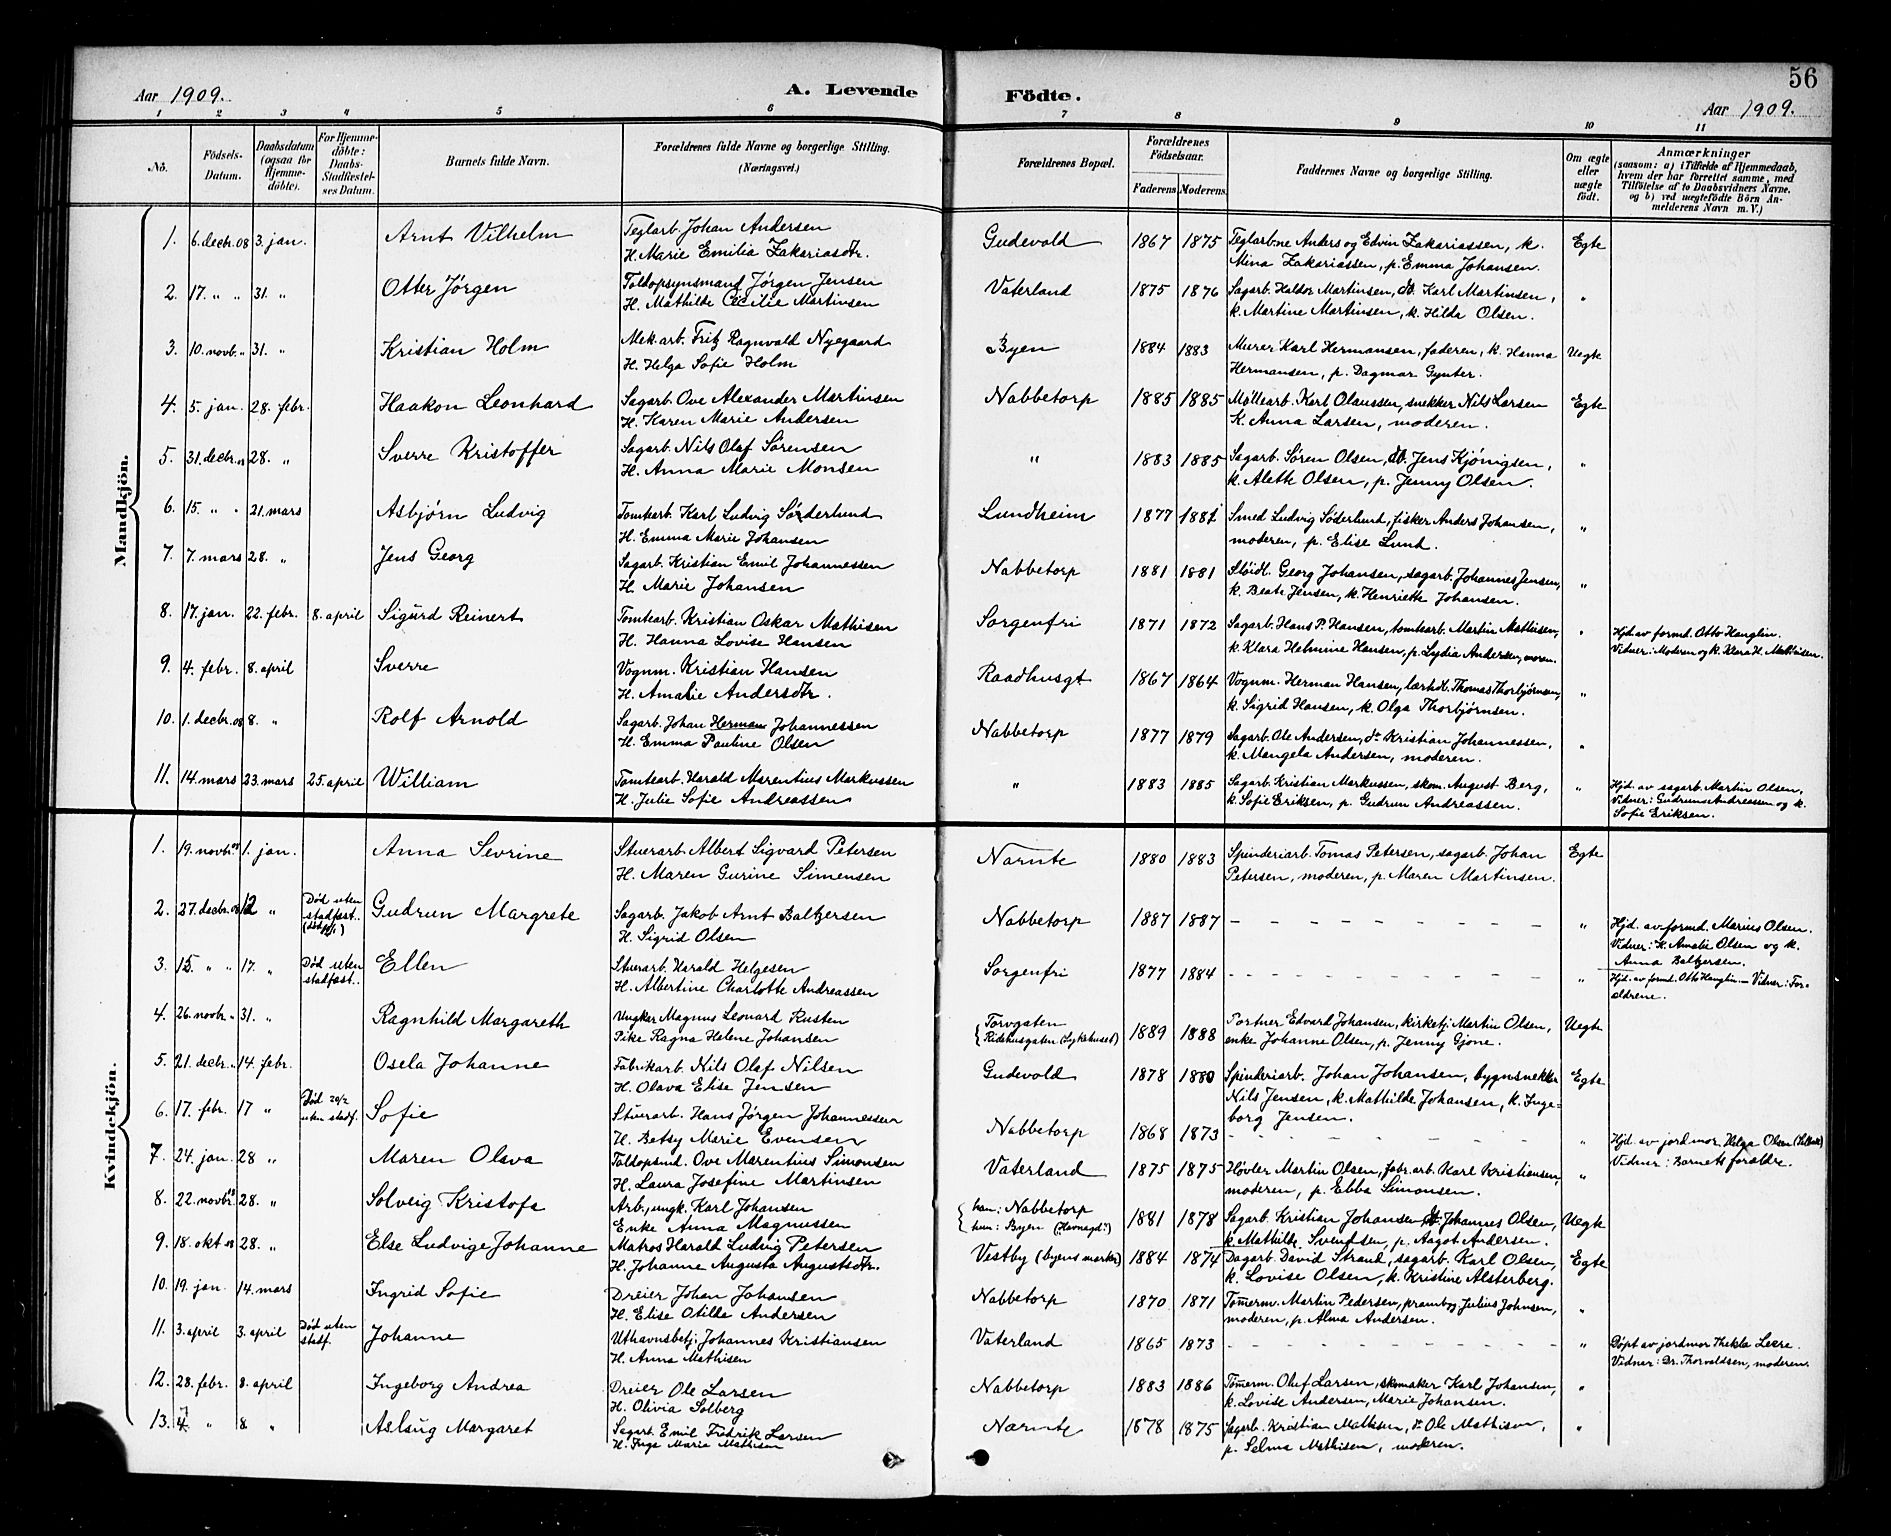 56
Aar 1909.
A. Levende Födte.
Aar 1909.
1 2 3 4 5 6 7 8 9 10 11
No.
Födsels-Datum.
Daabsdatum (ogsaa for Hjemme-döbte).
For Hjemme-döbte: Daabs-Stadfæstel-ses Datum.
Barnets fulde Navn.
Forældrenes fulde Navne og borgerlige Stilling. (Næringsvei.)
Forældrenes Bopæl.
Forældrenes Födselsaar.
Faderens. Moderens.
Faddernes Navne og borgerlige Stilling.
Om ægte eller uægte födt.
Anmærkninger
(saasom: a) i Tilfælde af Hjemmedaab, hvem der har forrettet samme, med Tilföielse af to Daabsvidners Navne, og b) ved uægtefödte Börn An-melderens Navn m. V.)
Mandkjön.
1. 6. decbr. 08 3. jan. Arnt Vilhelm Teglarb. Johan Andersen Gudevold 1867 1875 Teglarbne Anders og Edvin Zakariassen, k. Egte
H. Marie Emilia Zakariasdtr. Mina Zakariassen, p. Emma Johansen.
2. 17. " " 31. " Otter Jørgen Toldopsynsmand Jørgen Jensen Vaterland 1875 1876 Sagarb. Haldor Martinsen, do. Karl Martinsen, "
H. Mathilde Cicilie Martinsen k. Martine Martinsen, k. Hilda Olsen.
3. 10. novb. " 31. " Kristian Holm Mek.arb. Fritz Ragnvald Nyegaard Byen 1884 1883 Murer Karl Hermansen, faderen, k. Hanna Uegte
H. Helga Sofie Holm Hermansen, p. Dagmar Gynter.
4. 5. jan. 28. febr. Haakon Leonhard Sagarb. Ove Alexander Martinsen Nabbetorp 1885 1885 Møllearb. Karl Olaussen, snekker Nils Larsen Egte
H. Karen Marie Andersen K. Anna Larsen, moderen.
5. 31. decbr. 08 28. " Sverre Kristoffer Sagarb. Nils Olaf Sørensen " 1883 1885 Sagarb. Søren Olsen, do. Jens Kjønigsen, "
H. Anna Marie Monsen k. Alette Olsen, p. Jenny Olsen.
6. 15. " " 21. mars Asbjørn Ludvig Tomtearb. Karl Ludvig Søderlund Lundheim 1877 1881 Smed Ludvig Søderlund, fisker Anders Johansen, "
H. Emma Marie Johansen moderen, p. Elise Lund.
7. 7. mars 28. " Jens Georg Sagarb. Kristian Emil Johannessen Nabbetorp 1881 1881 Sløidl. Georg Johansen, sagarb. Johannes Jensen, "
H. Marie Johansen k. Beate Jensen, k. Henriette Johansen.
8. 17. jan. 22. febr. 8. april Sigurd Reinert Tomtearb. Kristian Oskar Mathisen Sorgenfri 1871 1872 Sagarb. Hans P. Hansen, tomtearb. Martin Mathisen, " Hjd. av formd. Otto Hanglin.
H. Hanna Lovise Hansen k. Klara Helmine Hansen, p. Lydia Andersen, moren. Vidner: Moderen og k. Klara H. Mathisen.
9. 4. febr. 8. april Sverre Vognm. Kristian Hansen Raadhusgt 1867 1864 Vognm. Herman Hansen, lærhdl. Thomas Thorbjørnsen, "
H. Amalie Andersdtr. k. Sigrid Hansen, k. Olga Thorbjørnsen.
10. 1. decbr. 08 8. " Rolf Arnold Sagarb. Johan Herman Johannessen Nabbetorp 1877 1879 Sagarb. Ole Andersen, do Kristian Johannessen, "
H. Emma Pauline Olsen k. Mangela Andersen, moderen.
11. 14. mars 23. mars 25. april William Tomtearb. Harald Marentius Markussen " 1883 1885 Sagarb. Kristian Markussen, skom. August Berg, " Hjd. av sagarb. Martin Olsen,
H. Julie Sofie Andreassen k. Sofie Eriksen, p. Gudrun Andreassen. Vidner: Gudrun Andreassen og k.
Sofie Eriksen.
Kvindekjön.
1. 19. novbr. 08 1. jan. Anna Sevrine Stuerarb. Albert Sigvard Petersen Nornte 1880 1883 Spinderiarb. Tomas Petersen, sagarb. Johan Egte
H. Maren Gurine Simensen Petersen, moderen, p. Maren Martinsen.
2. 27. decbr. 08 12 " Død uten stadfæst. Gudrun Margrete Sagarb. Jakob Arnt Baltzersen Nabbetorp 1887 1887 - - - - - - - - " Hjd. av formd. Marius Olsen.
H. Sigrid Olsen Vidner: k. Amalie Olsen og k.
Anna Baltzersen.
3. 15 " " 17. " Død uten stadfæst.. Ellen Stuerarb. Harald Helgesen Sorgenfri 1877 1884 - - - - - - - - " Hjd. av formd. Otto Hanglin. - Vidner: For-
H. Albertine Charlotte Andreassen ældrene.
4. 26. novbr. " 31. " Ragnhild Margareth Ungkar Magnus Leonard Rusten { Torvgaten 1889 1888 Portner Edvard Johansen, kirketj. Martin Olsen, Uegte
Pike Ragna Helene Johansen Ridehusgaten (Sykehuset) enke Johanne Olsen, p. Jenny Gjone.
5. 21. decbr. " 14. febr. Osela Johanne Fabrikarb. Nils Olaf Nilsen Gudevold 1878 1880 Spinderiarb. Johan Johansen, bygnsnekker Egte
H. Olava Elise Jensen Nils Jensen, k. Mathilde Johansen, k. Inge-
borg Jensen.
6. 17. febr. 17 " Død 20/2 uten stadf. Sofie Stuerarb. Hans Jørgen Johannessen Nabbetorp 1868 1873 - - - - - - - - " Hjd. av jordmor Helga Olsen
H. Betsy Marie Evensen Vidner: Barnets forældre.
7. 24. jan. 28 " Maren Olava Toldopsmd. Ove Marentius Simonsen Vaterland 1875 1875 Høvler Martin Olsen, fabr.arb. Karl Kristiansen, "
H. Laura Josefine Martinsen moderen, p. Ebba Simonsen.
8. 22. novbr. 08 28. " Solveig Kristofa Arb., ungk. Karl Johansen { han: Nabbetorp 1881 1878 Sagarb. Kristian Johansen, do. Johannes Olsen, Uegte
Enke Anna Magnussen hun: Byen k. Mathilde Svendsen, p. Aagot Andersen.
9. 18. okt. 08 28. " Else Ludvige Johanne Matros Harald Ludvig Petersen Vestby (byens marker) 1884 1874 Dagarb. David Strand, sagarb. Karl Olsen, Egte
H. Johanne Augusta Augustsdtr. k. Lovise Olsen, k. Kristine Alsterberg.
10. 19. jan. 14. mars Ingrid Sofie Dreier Johan Johansen Nabbetorp 1870 1871 Tømerm. Martin Pedersen, prambg. Julius Johnsen, "
H. Elise Otilde Andersen moderen, p. Alma Andersen.
11. 3. april 3. april Død uten stadf. Johanne Uthavnsbetj. Johannes Kristiansen Vaterland 1865 1873 - - - - - - - - " Døpt av jordmor Thekla Leere.
H. Anna Mathisen Vidner: Dr. Thorvaldsen, moderen.
12. 28. febr. 8. april Ingeborg Andrea Dreier Ole Larsen Nabbetorp 1883 1886 Tømerm. Oluf Larsen, skomaker Karl Johansen, "
H. Olivia Solberg k. Lovise Andersen, Marie Johansen.
13. " 8 " Aslaug Margaret Sagarb. Emil Fredrik Larsen Nornte 1878 1875 Sagarb. Kristian Mathisen, do Ole Mathisen, "
H. Inga Maria Mathisen p. Selma Mathisen, moderen.